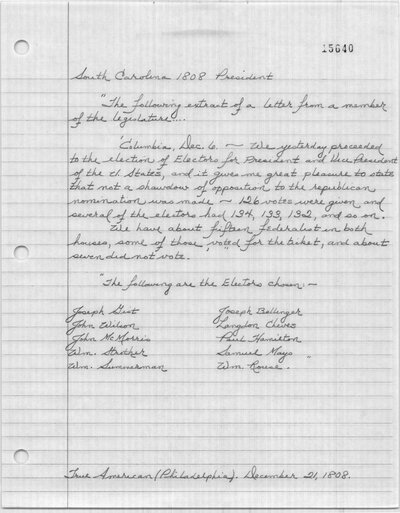 15640
South Carolina 1808 President
"The following extract of a letter from a member
of the legislature...
'Columbia, Dec. 6. — We yesterday proceeded
to the election of Electors for President and Vice President
of the U. States, and it gives me great pleasure to state
that not a shawdow of opposition to the republican
nomination was made — 126 votes were given and
several of the electors had 134, 133, 132, and so on.
We have about fifteen federalist in both
houses, some of those 'voted' for the ticket, and about
seven did not vote.
"The following are the Electors chosen: —
Joseph Gist Joseph Bellinger
John Wilson Langdon Cheves
John McMorris Paul Hamilton
Wm. Strother Samuel Mays
Wm. Summerman Wm. Rouse. "
True American (Philadelphia). December 21, 1808.